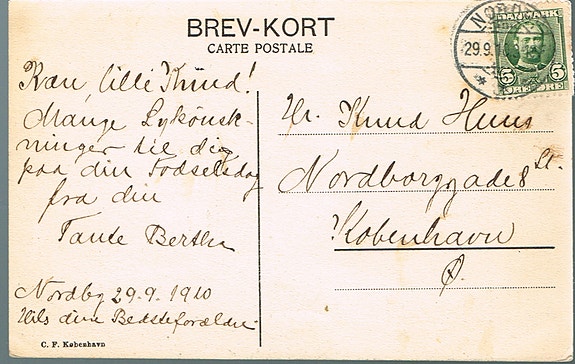 BREV-KORT
CARTE POSTALE
Kære lille Knud!
Mange Lykønsk-
ninger til dig
paa din Fødselsdag
fra din
Tante Bertha
Nordby 29.9.1910
Hils dine Bedsteforældre
C. F. København
Hr. Knud Huus
Nordborggade 8 St.
København
Ø.
29.9.1
DANMARK
5 5